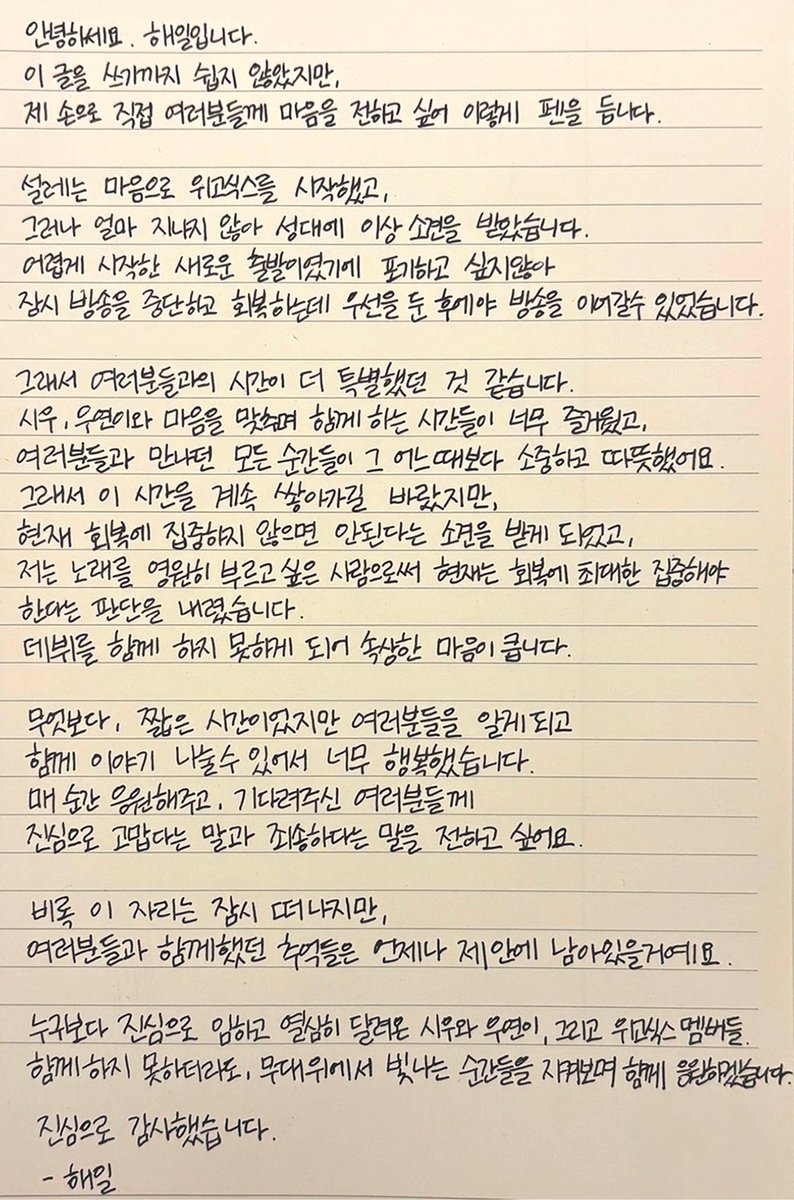 안녕하세요. 해일입니다.
이 글을 쓰기까지 쉽지 않았지만,
제 손으로 직접 여러분들께 마음을 전하고 싶어 이렇게 펜을 듭니다.
설레는 마음으로 위고식스를 시작했고,
그러나 얼마 지나지 않아 성대에 이상 소견을 받았습니다.
어렵게 시작한 새로운 출발이였기에 포기하고 싶지않아
잠시 방송을 중단하고 회복하는데 우선을 둔 후에야 방송을 이어갈수 있었습니다.
그래서 여러분들과의 시간이 더 특별했던 것 같습니다.
시우, 우연이와 마음을 맞추며 함께 하는 시간들이 너무 즐거웠고,
여러분들과 만나던 모든 순간들이 그 어느때보다 소중하고 따뜻했어요.
그래서 이 시간을 계속 쌓아가길 바랐지만,
현재 회복에 집중하지 않으면 안된다는 소견을 받게 되었고,
저는 노래를 영원히 부르고싶은 사람으로써 현재는 회복에 최대한 집중해야
한다는 판단을 내렸습니다.
데뷔를 함께 하지 못하게 되어 속상한 마음이 큽니다.
무엇보다, 짧은 시간이었지만 여러분들을 알게되고
함께 이야기 나눌수 있어서 너무 행복했습니다.
매 순간 응원해주고, 기다려주신 여러분들께
진심으로 고맙다는 말과 죄송하다는 말을 전하고 싶어요.
비록 이 자리는 잠시 떠나지만,
여러분들과 함께했던 추억들은 언제나 제안에 남아있을거예요.
누구보다 진심으로 임하고 열심히 달려온 시우와 우연이, 그리고 위고식스 멤버들.
함께하지 못하더라도, 무대위에서 빛나는 순간들을 지켜보며 함께 응원하겠습니다.
진심으로 감사했습니다.
- 해일